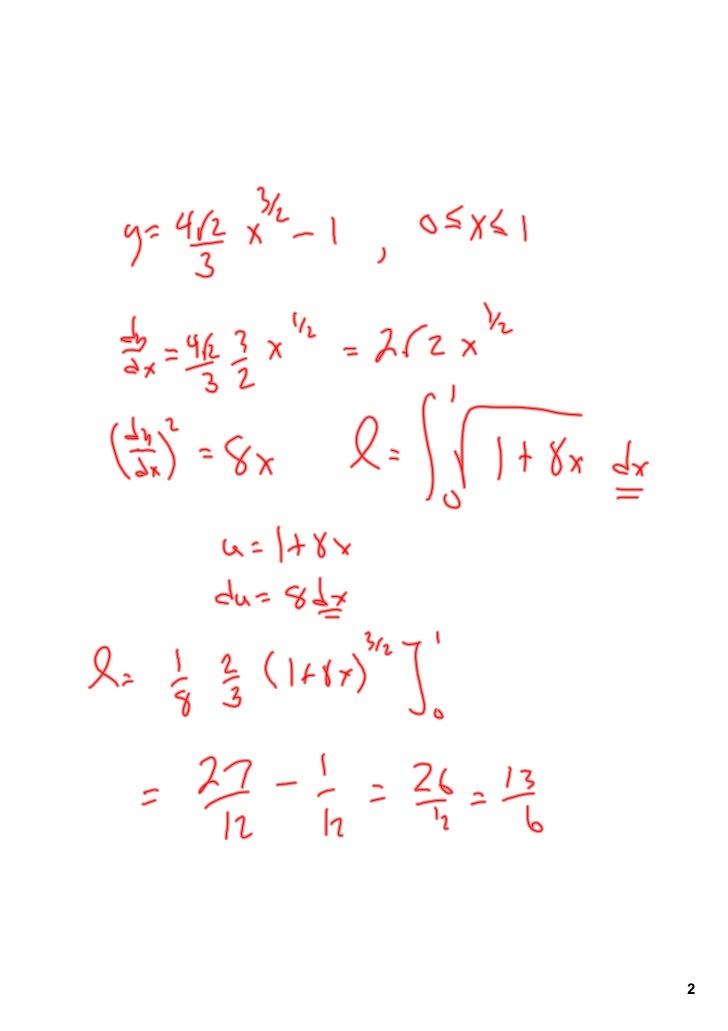 y = 4√2/3 x^3/2 − 1 , 0 ≤ x ≤ 1
dy/dx = 4√2/3 3/2 x^1/2 = 2√2 x^1/2
(dy/dx)^2 = 8x ℓ = ∫_0^1 √(1 + 8x) dx
u = 1 + 8x
du = 8dx
ℓ = 1/8 2/3 (1 + 8x)^3/2 ]_0^1
= 27/12 − 1/12 = 26/12 = 13/6
2